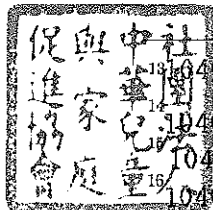 社團法人
中華兒童
與家庭
促進協會
13
104
14
104
15
104
16
104